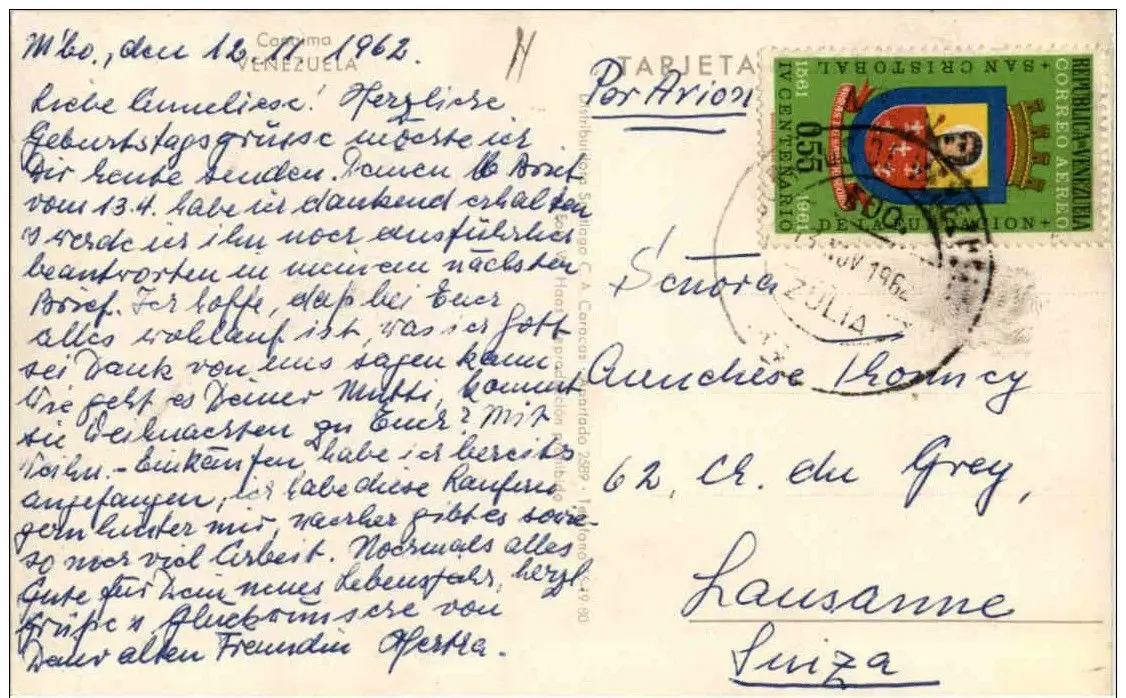 M'bo., den 12.11.1962.
Canaima
VENEZUELA
Liebe Anneliese! Herzliche
Geburtstagsgrüsse möchte ich
Dir heute senden. Deinen lb Brief
vom 13.4. habe ich dankend erhalten
u werde ich ihn noch ausführlich
beantworten in meinem nächsten
Brief. Ich hoffe, daß bei Euch
alles wohlauf ist, was ich Gott
sei Dank von uns sagen kann
Wie geht es Deiner Mutti, kommt
sie Weihnachten zu Euch? Mit
Weihn.-Einkäufen habe ich bereits
angefangen, ich habe diese
gern hinter mir, nachher gibt es sowie-
so noch viel Arbeit. Nochmals alles
Gute für Dein neues Lebensjahr, herzl
Grüße u Glückwünsche von
Deiner alten Freundin Hertha.
Distribuidora Santiago C. A. Caracas - Apartado 2589 - Teléfono
TARJETA
Por Avion
REPUBLICA DE VENEZUELA
CORREO AEREO
+ SAN CRISTOBAL +
IV CENTENARIO
DE LA FUNDACION +
1561
1961
0,55
NOV 1962
ZULIA
Señora
62, Ch. du Grey,
Lausanne
Suiza